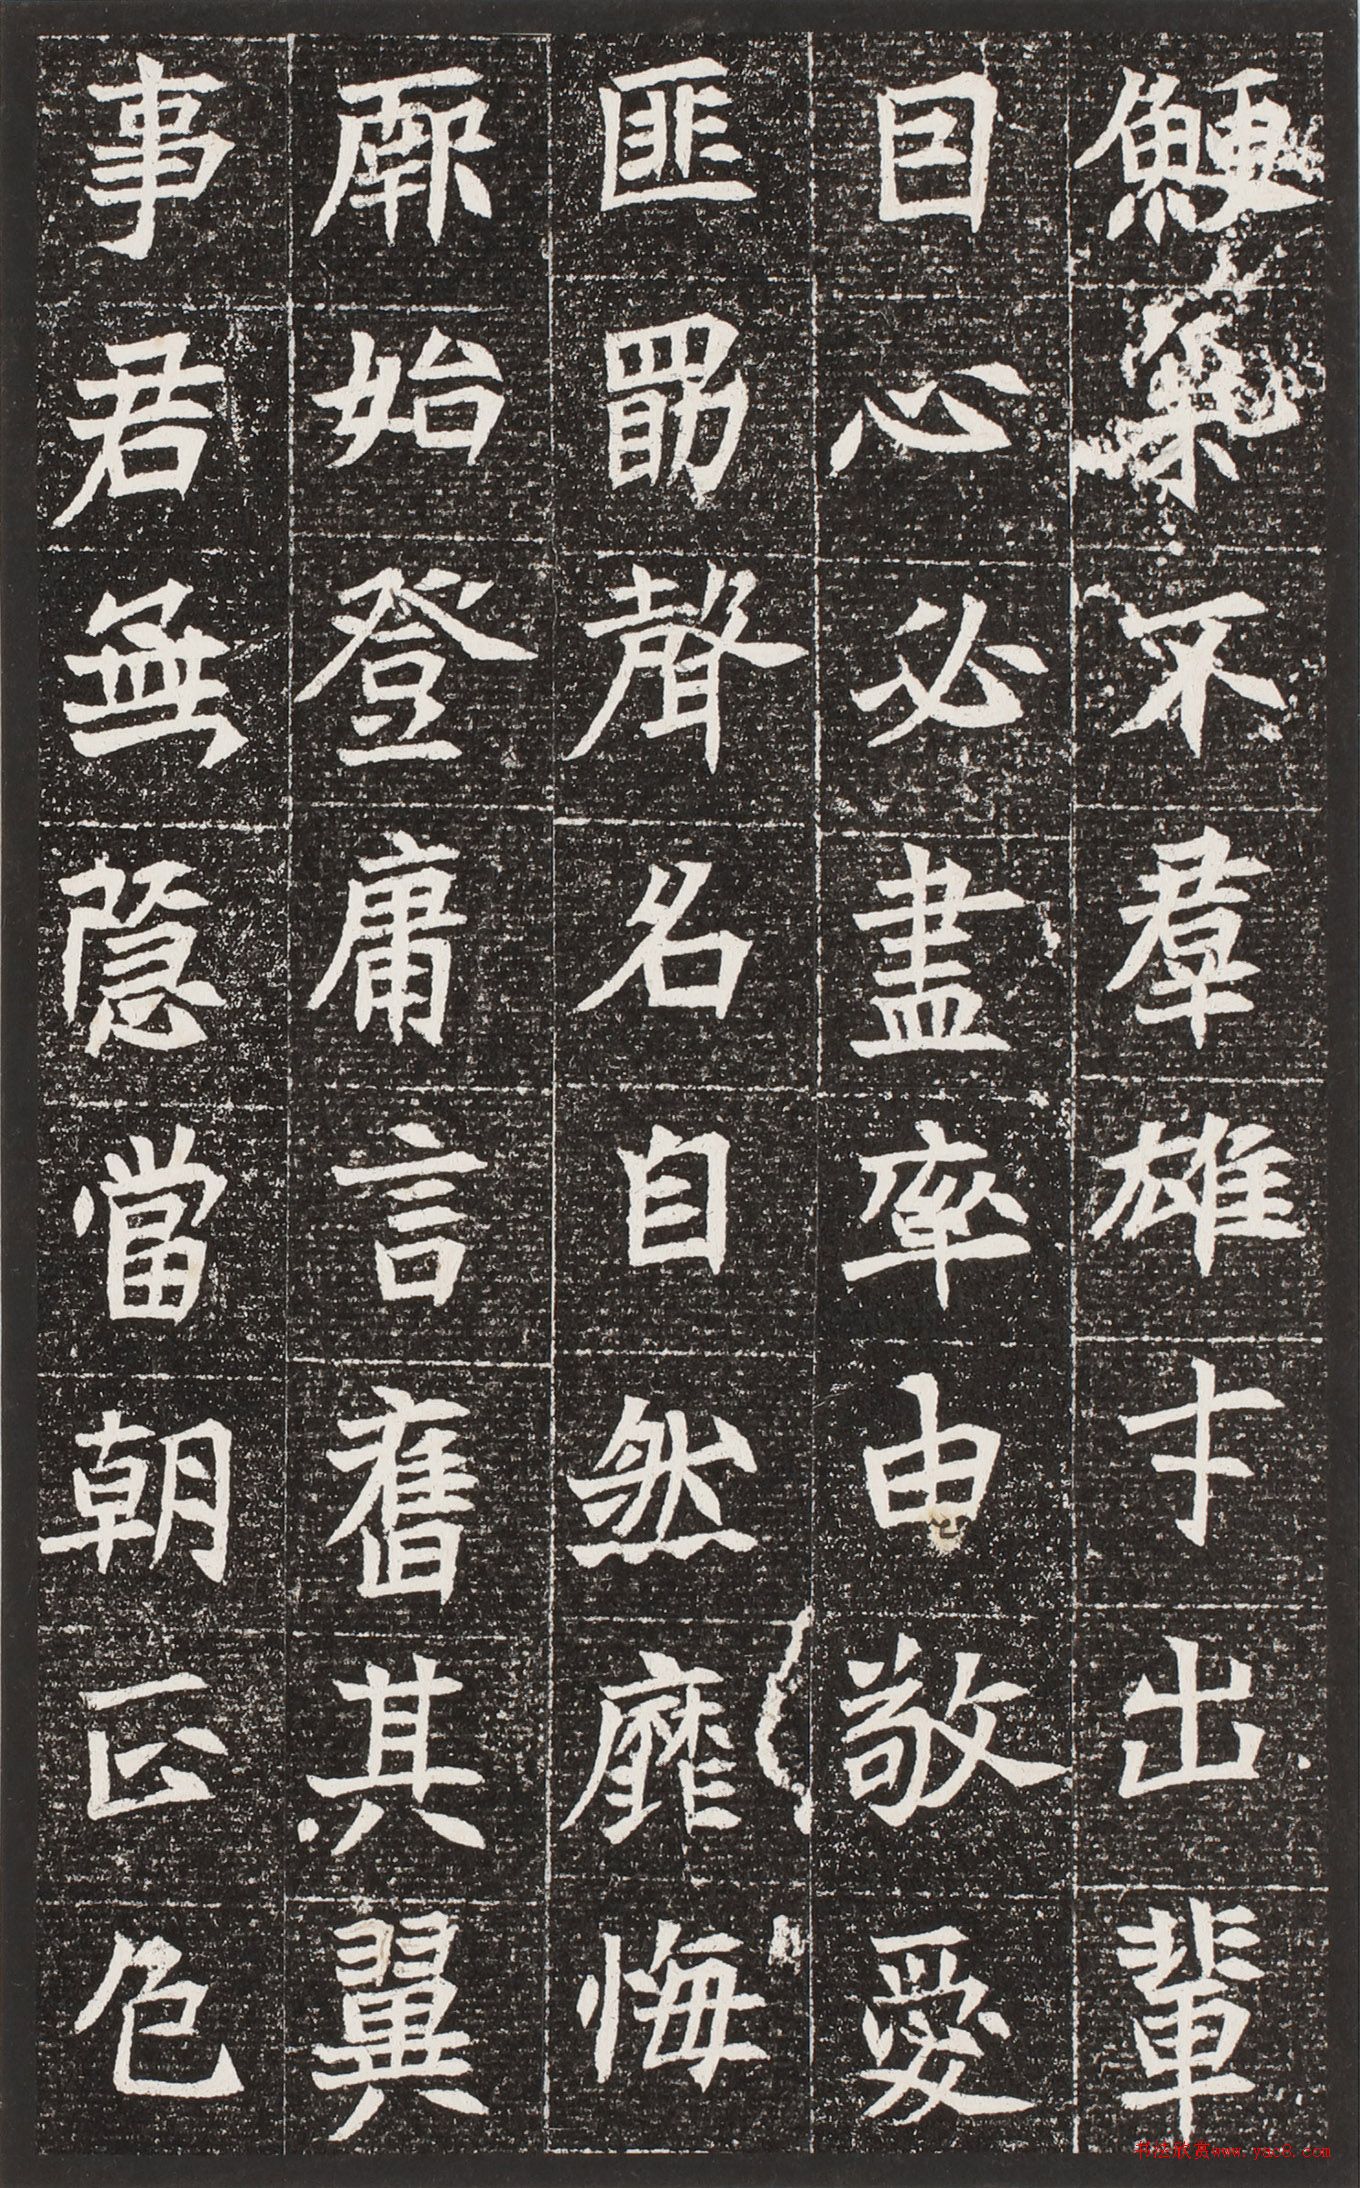 鯁槩不羣雄才出輩
因心必盡率由敬愛
匪勗聲名自然靡悔
厥始登庸言奮其翼
事君無隱當朝正色
书法欣赏www.yac8.com